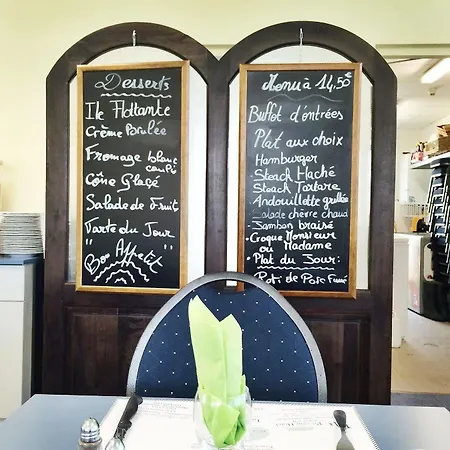 Desserts
Ile Flottante
Crème Brulée
Fromage blanc
coulis
Cône Glacé
Salade de Fruit
Tarte du Jour
"Bon Appetit"
Menu à 14,50€
Buffet d'entrées
Plat aux choix
Hamburger
Steack Haché
Steack Tartare
Andouillette grillée
Salade chèvre chaud
Jambon braisé
• Croque Monsieur
ou Madame
• Plat du Jour:
Roti de Porc Fumé